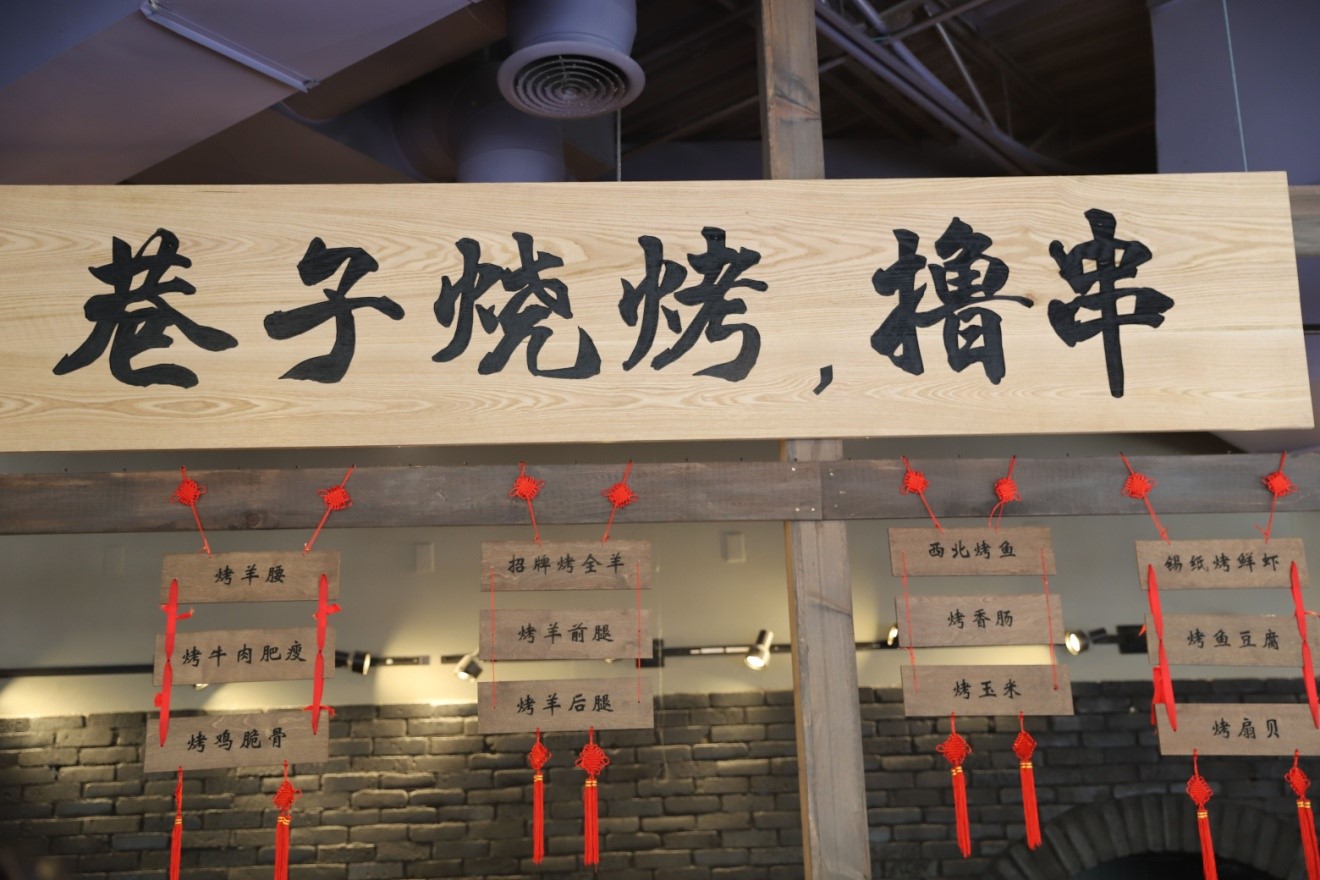 巷子燒烤,撸串
烤羊腰
烤牛肉肥瘦
烤鸡脆骨
招牌烤全羊
烤羊前腿
烤羊后腿
西北烤鱼
烤香肠
烤玉米
锡纸烤鲜虾
烤鱼豆腐
烤扇贝